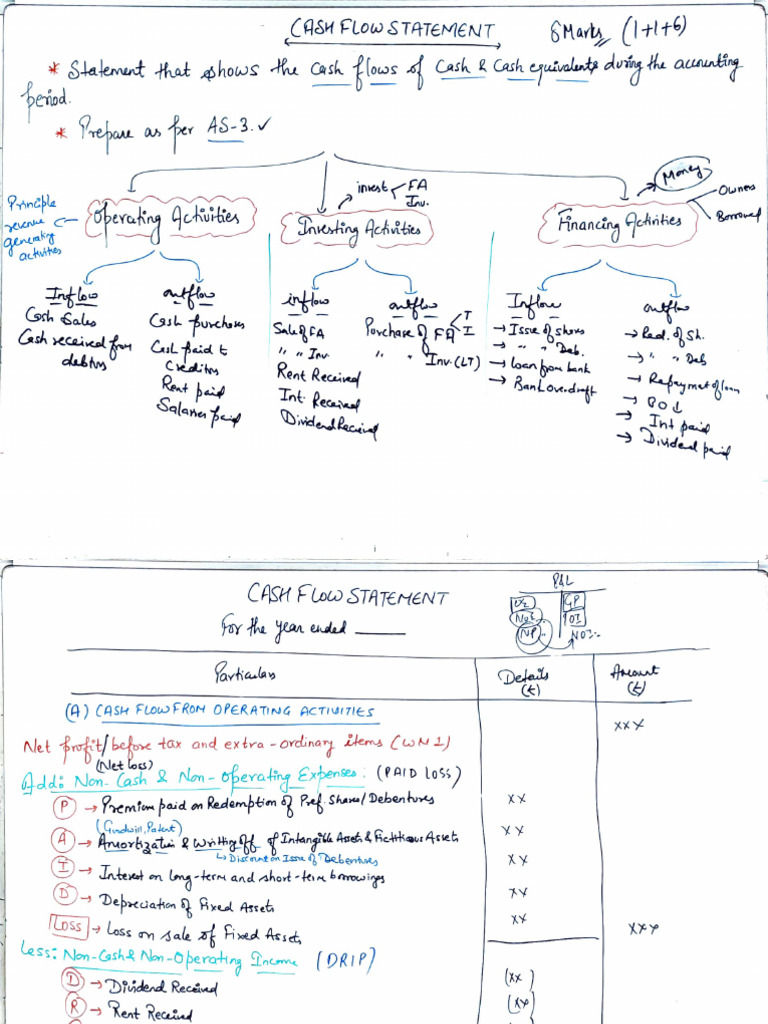 CASH FLOW STATEMENT 8 Marks (1+1+6)
* Statement that shows the Cash flows of Cash & Cash equivalents during the accounting
period.
* Prepare as per AS-3. ✓
Principle
revenue
generating
activities
Operating Activities
invest FA
Inv.
Investing Activities
Money
Owners
Borrowed
Financing Activities
Inflow
Cash Sales
Cash received from
debtors
outflow
Cash purchases
Cash paid t
creditors
Rent paid
Salaries paid
inflow
Sale of FA
" " Inv.
Rent Received
Int. Received
Dividend Received
outflow
Purchase of FA T
I
" " Inv. (LT)
Inflow
→ Issue of shares
→ " " Deb.
→ loan from bank
→ Bank overdraft
outflow
→ Red. of Sh.
→ " " Deb
→ Repaymet of loan
→ BO ↓
→ Int paid
→ Dividend paid
CASH FLOW STATEMENT
For the year ended
P&L
GP
OI
NP
Particulars Details Amount
(₹) (₹)
(A) CASH FLOW FROM OPERATING ACTIVITIES
Net profit/before tax and extra-ordinary items (WN1) xxx
(Net loss)
Add: Non-Cash & Non-Operating Expenses: (PAID LOSS)
P → Premium paid on Redemption of Pref. Shares/Debentures xx
(Goodwill, Patent)
A → Amortization & Writting off of Intangible Assets & Fictitious Assets xx
↳ Discount on Issue of Debentures
I → Interest on long-term and short-term borrowings xx
D → Depreciation of Fixed Assets xx
LOSS → Loss on sale of Fixed Assets xx xxx
Less: Non-Cash & Non-Operating Income (DRIP)
D → Dividend Received (xx)
R → Rent Received (xx)